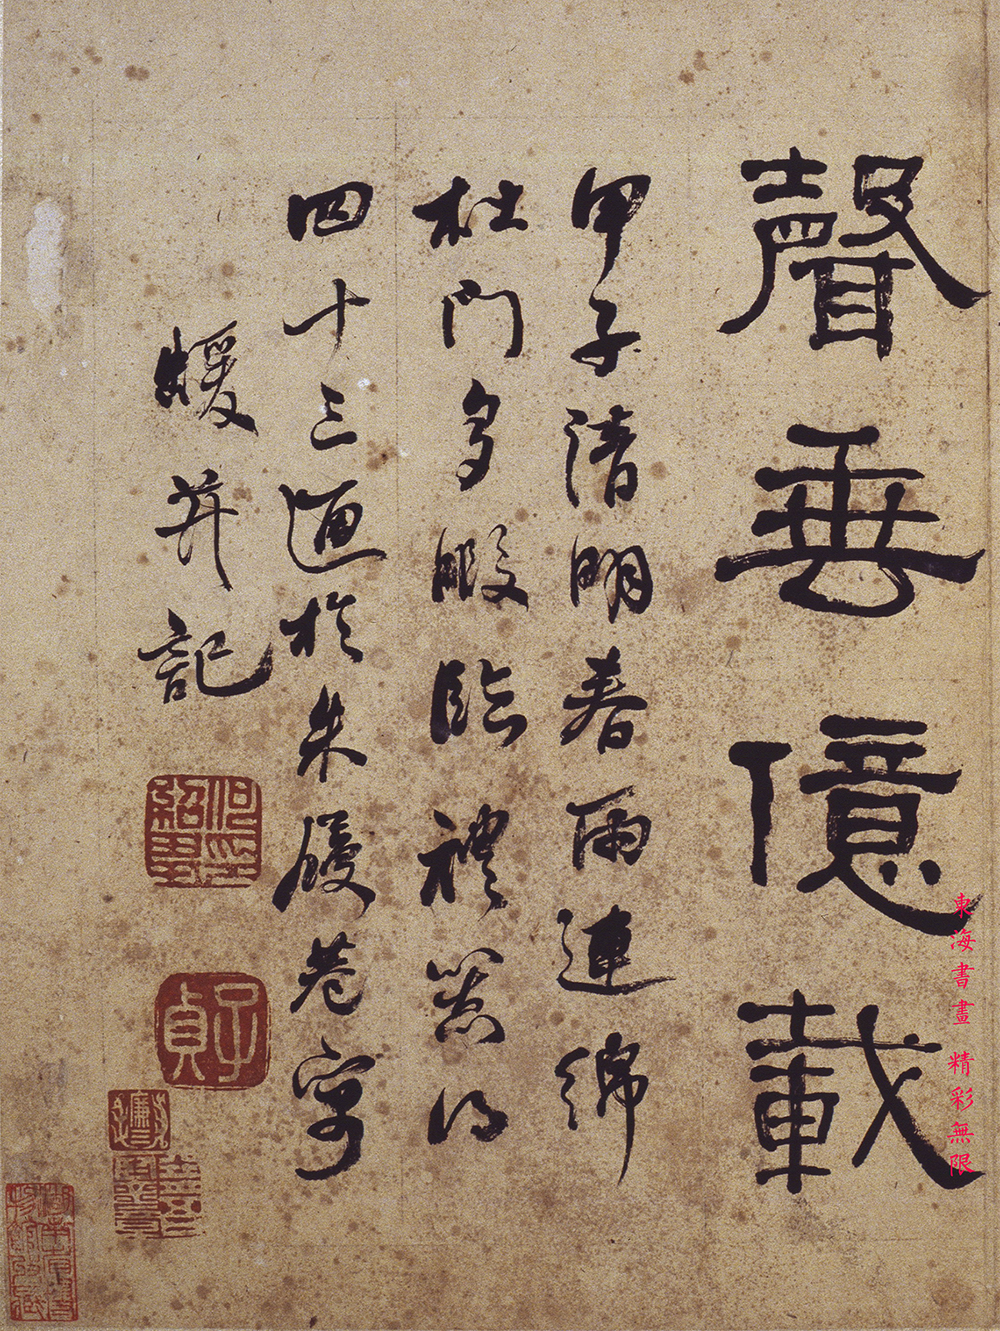 聲垂億載
甲子清明春雨連綿
杜門多暇臨禮器得
四十三通於朱履巷寓
蝯并記
何紹基印
子貞
東海書畫 精彩無限